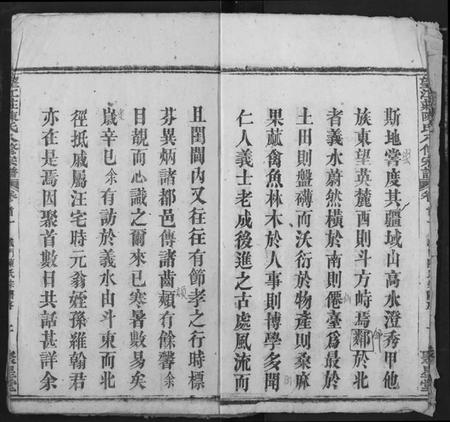 斯地嘗度其疆域山高水澄秀甲他
族東望英麓西則斗方峙焉鄰於北
者義水蔚然橫於南則僊臺爲最於
土田則盤礴而沃衍於物產則桑麻
果蓏禽魚林木於人事則博學多聞
仁人義士老成後進之古處風流而
且閨閫內又往往有節孝之行時標
芬異炳諸都邑傳諸齒頰有餘馨余
目覩而心識之爾來已寒暑數易矣
歲辛巳余有訪於義水由斗東而北
徑抵戚屬汪宅時元翁姪孫羅翰君
亦在是焉因聚首數日共話甚詳余